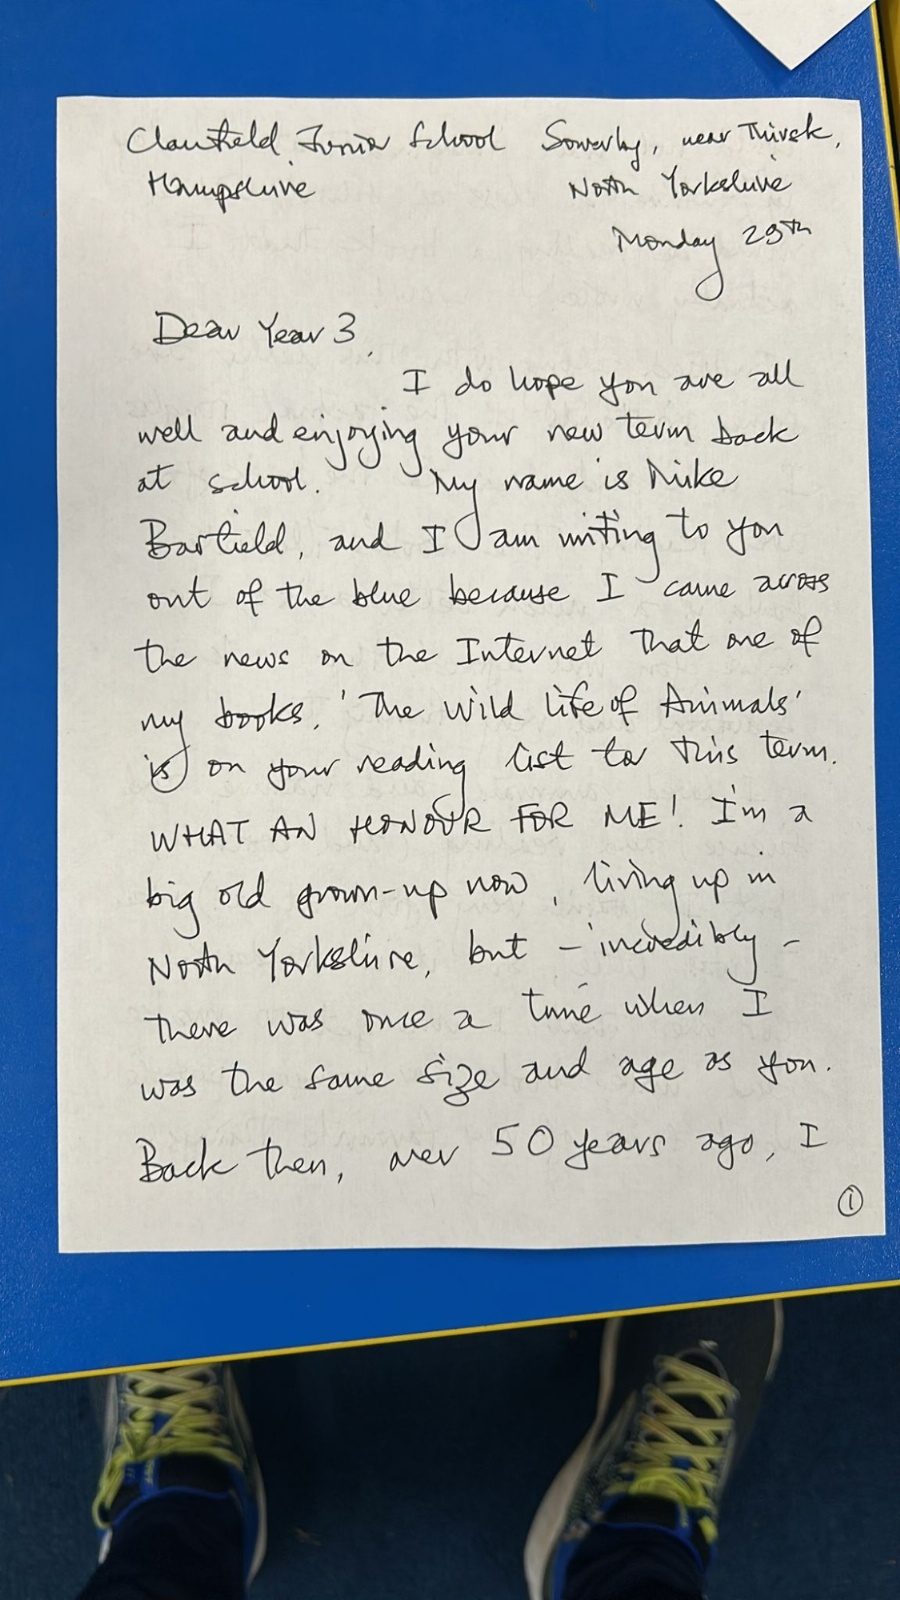 Clanfield Junior School Sowerby, near Thirsk,
Hampshire North Yorkshire
Monday 29th
Dear Year 3,
I do hope you are all
well and enjoying your new term back
at school. My name is Mike
Barfield, and I am writing to you
out of the blue because I came across
the news on the Internet that one of
my books, 'The Wild Life of Animals'
is on your reading list for this term.
WHAT AN HONOUR FOR ME! I'm a
big old grown-up now, living up in
North Yorkshire, but – incredibly –
there was once a time when I
was the same size and age as you.
Back then, over 50 years ago, I
1